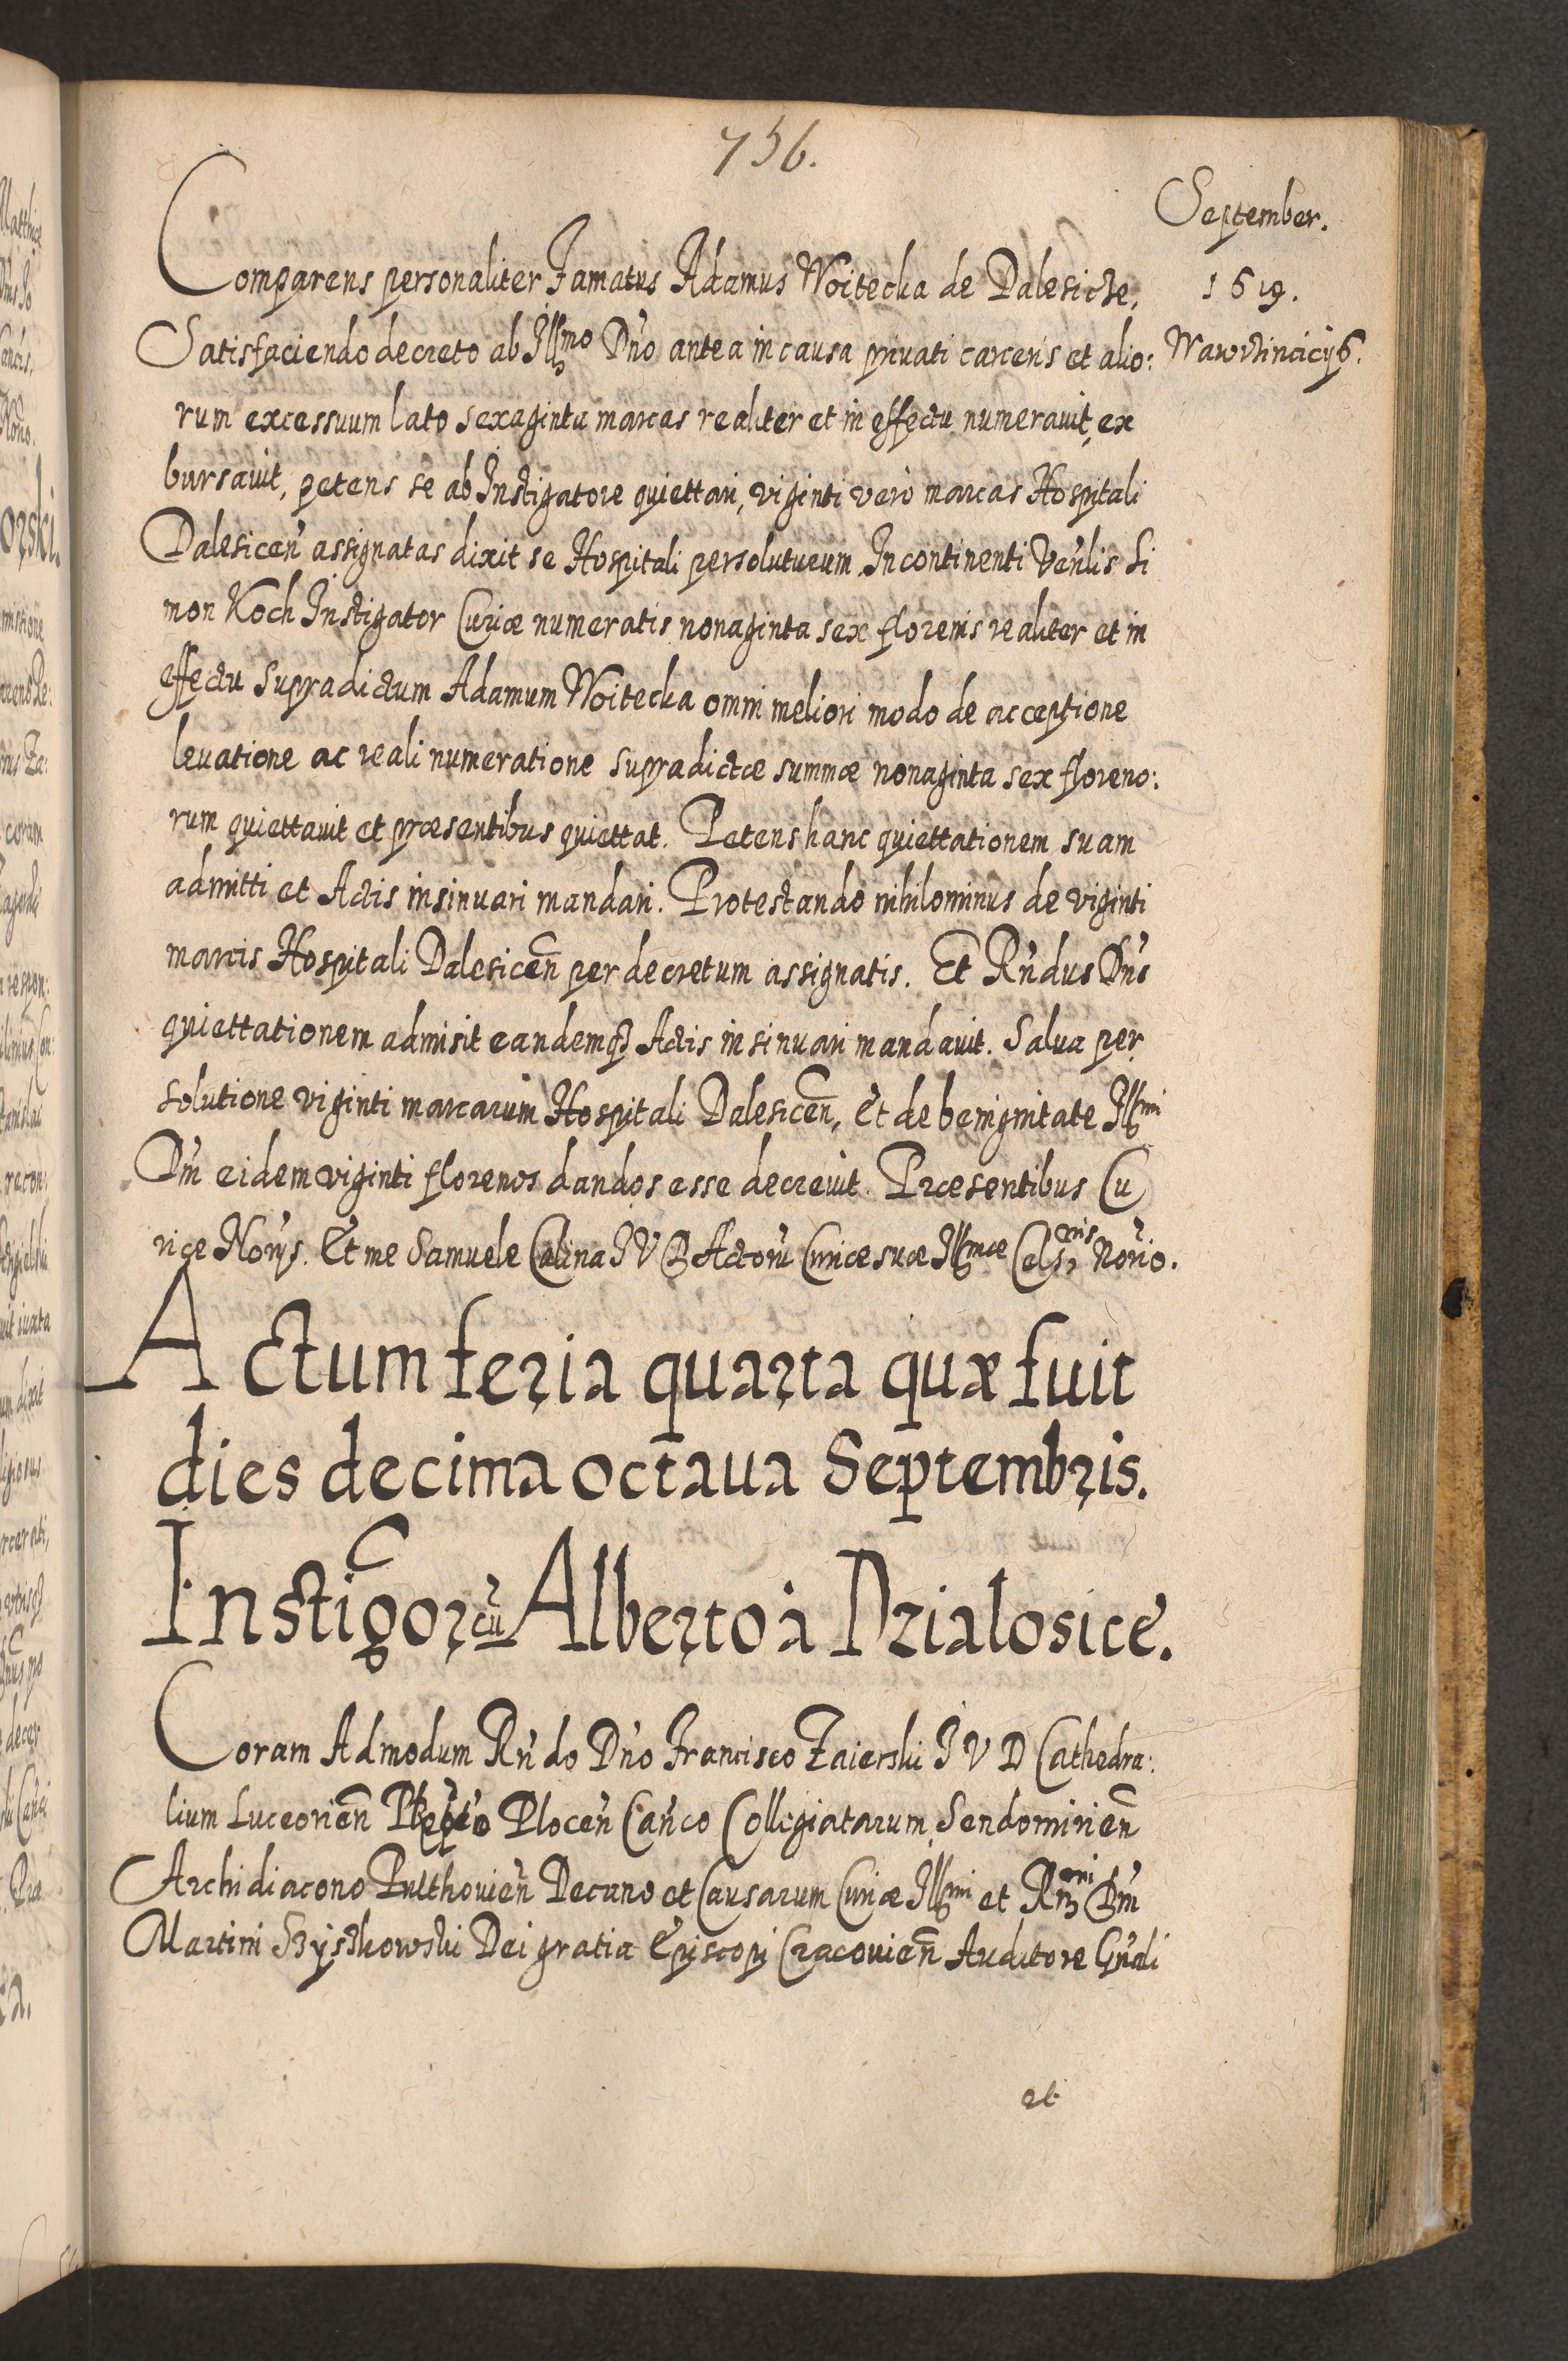 756.
September.
1619.
Comparens personaliter Famatus Adamus Woitecka de Dalesicze,
Satisfaciendo decreto ab Illmo Dno antea in causa privati carceris et alio:
rum excessuum lato sexaginta marcas realiter et in effectu numerauit, ex
bursauit, petens se ab Instigatore quiettari, viginti vero marcas Hospitali
Dalesicen assignatas dixit se Hospitali persoluturum. In continenti Venlis Si
mon Koch Instigator Curiæ numeratis nonaginta sex florenis realiter et in
effectu supradictum Adamum Woitecka omni meliori modo de acceptione
leuatione ac reali numeratione supradictæ summæ nonaginta sex floreno:
rum quiettauit et præsentibus quiettat. Petens hanc quiettationem suam
admitti et Actis insinuari mandari. Protestando nihilominus de viginti
marcis Hospitali Dalesicen per decretum assignatis. Et Rndus Dns
quiettationem admisit eandemq3 Actis insinuari mandauit. Salua per
solutione viginti marcarum Hospitali Dalesicen, Et de benignitate Illmi
Dni eidem viginti florenos dandos esse decreuit. Præsentibus Cu
riæ Norijs. Et me Samuele Calina I V B Actoru Curiæ suæ Illmæ Cels nis Norio.
Actum feria quarta quæ fuit
dies decima octaua Septembris.
Instigor cu Alberto à Dzialosice.
Coram Admodum Rndo Dno Francisco Zaierski I V D Cathedra:
lium Luceorien Plocen Canco Collegiatarum Sendomirien
Archidiacono Pulthouien Decano et Causarum Curiæ Illmi et Rmi Dni
Martini Szyszkowski Dei gratia Episcopi Cracouien Auditore Gnali
et